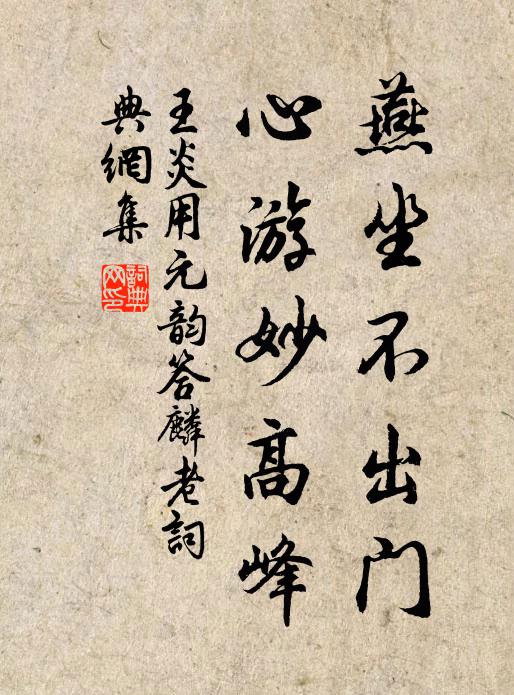 燕坐不出门
心游妙高峰
王炎用元韵答麟老词
典網集
詞典網印